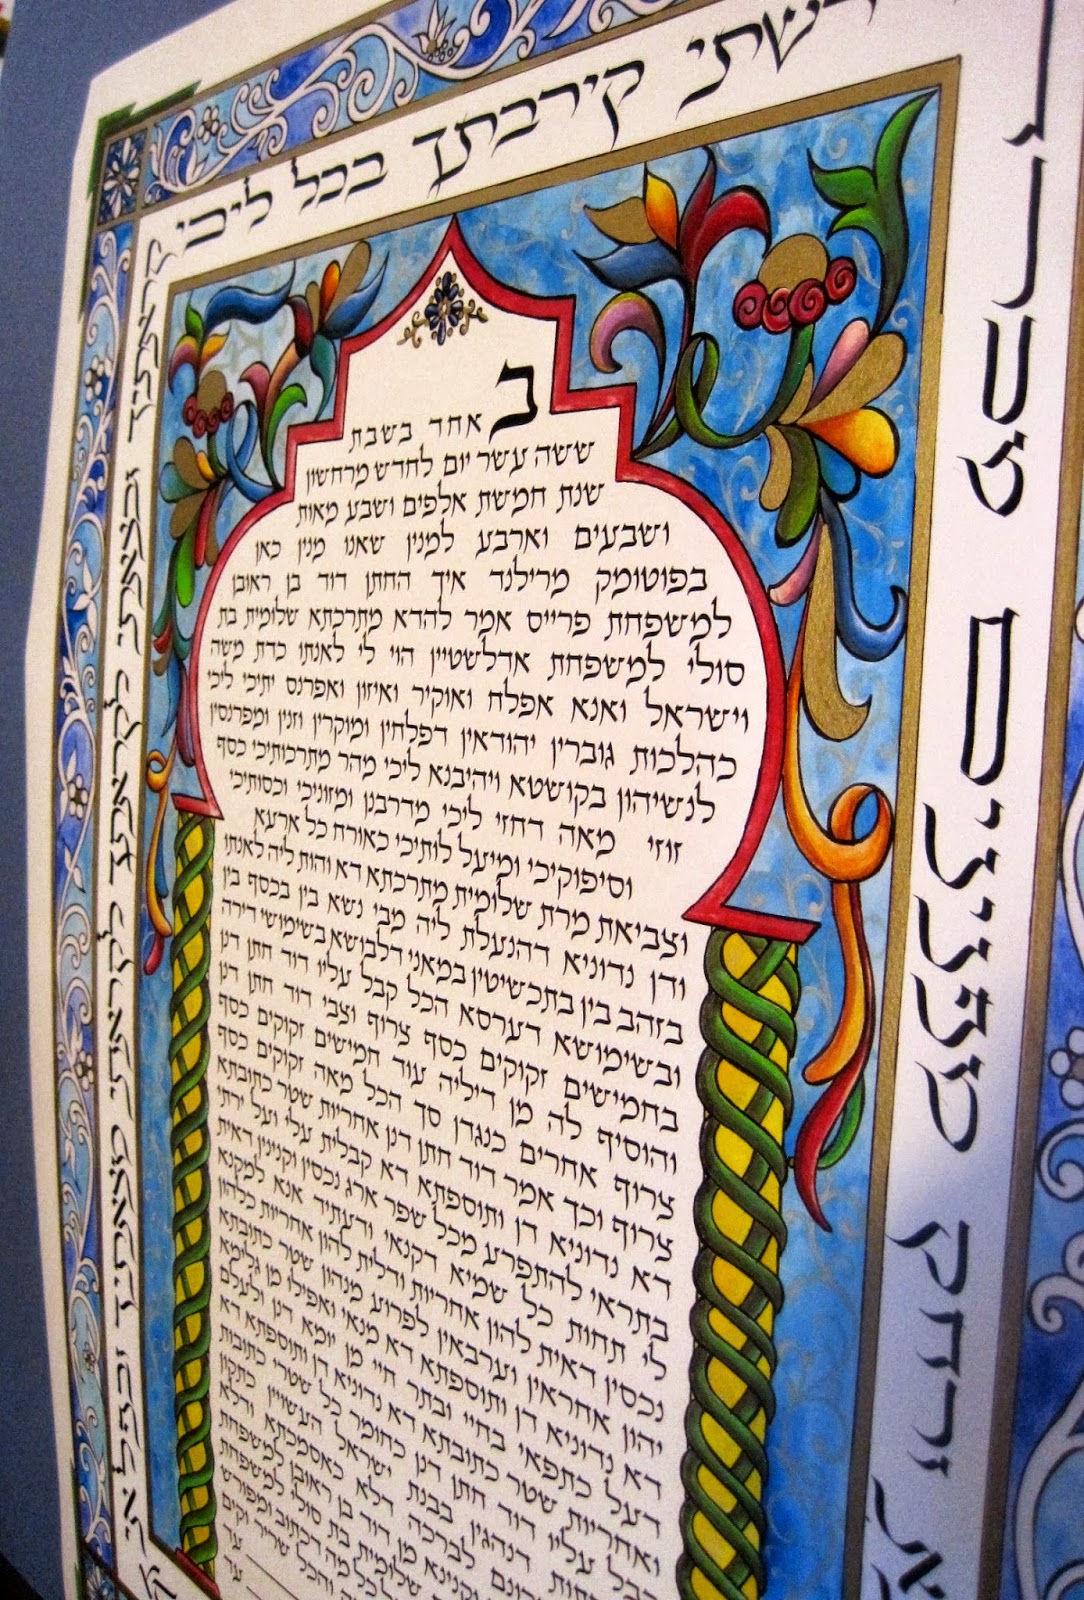 קירבתך בכל ליבי קראתיך
ובצאתי לקראתך לקראתי מצאתיך
ורחק מפנינים
ב אחד בשבת
ששה עשר יום לחדש מרחשון
שנת חמשת אלפים ושבע מאות
ושבעים וארבע למנין שאנו מנין כאן
בפוטומק מרילנד איך החתן דוד בן ראובן
למשפחת פרייס אמר להדא מתרכתא שלומית בת
סולי למשפחת אדלשטיין הוי לי לאנתו כדת משה
וישראל ואנא אפלח ואוקיר ואיזון ואפרנס יתיכי ליכי
כהלכות גוברין יהודאין דפלחין ומוקרין וזנין ומפרנסין
לנשיהון בקושטא ויהיבנא ליכי מהר מתרכותיכי כסף
זוזי מאה דחזי ליכי מדרבנן ומזוניכי וכסותיכי
וסיפוקיכי ומיעל לותיכי כאורח כל ארעא
וצביאת מרת שלומית מתרכתא דא והות ליה לאנתו
ודן נדוניא דהנעלת ליה מבי נשא בין בכסף בין
בזהב בין בתכשיטין במאני דלבושא בשימושי דירה
ובשימושא דערסא הכל קבל עליו דוד חתן דנן
בחמישים זקוקים כסף צרוף וצבי דוד חתן דנן
והוסיף לה מן דיליה עוד חמישים זקוקים כסף
צרוף אחרים כנגדן סך הכל מאה זקוקים כסף
צרוף וכך אמר דוד חתן דנן אחריות שטר כתובתא
דא נדוניא דן ותוספתא דא קבלית עלי ועל ירתי
בתראי להתפרע מכל שפר ארג נכסין וקנינין דאית
לי תחות כל שמיא דקנאי ודעתיד אנא למקנא
נכסין דאית להון אחריות ודלית להון אחריות כלהון
יהון אחראין וערבאין לפרוע מנהון שטר כתובתא
דא נדוניא דן ותוספתא דא מנאי ואפילו מן גלימא
דעל כתפאי בחיי ובתר חיי מן יומא דנן ולעלם
ואחריות שטר כתובתא דא נדוניא דן ותוספתא דא
קבל עליו דוד חתן דנן כחומר כל שטרי כתובות
דנהגין בבנת ישראל העשויין כתקון
לברכה דלא כאסמכתא ודלא
וקנינא מן דוד בן ראובן למשפחת
שלומית בת סולי למשפחת
לכל מה דכתוב ומפורש
והכל שריר וקים
עד
עד